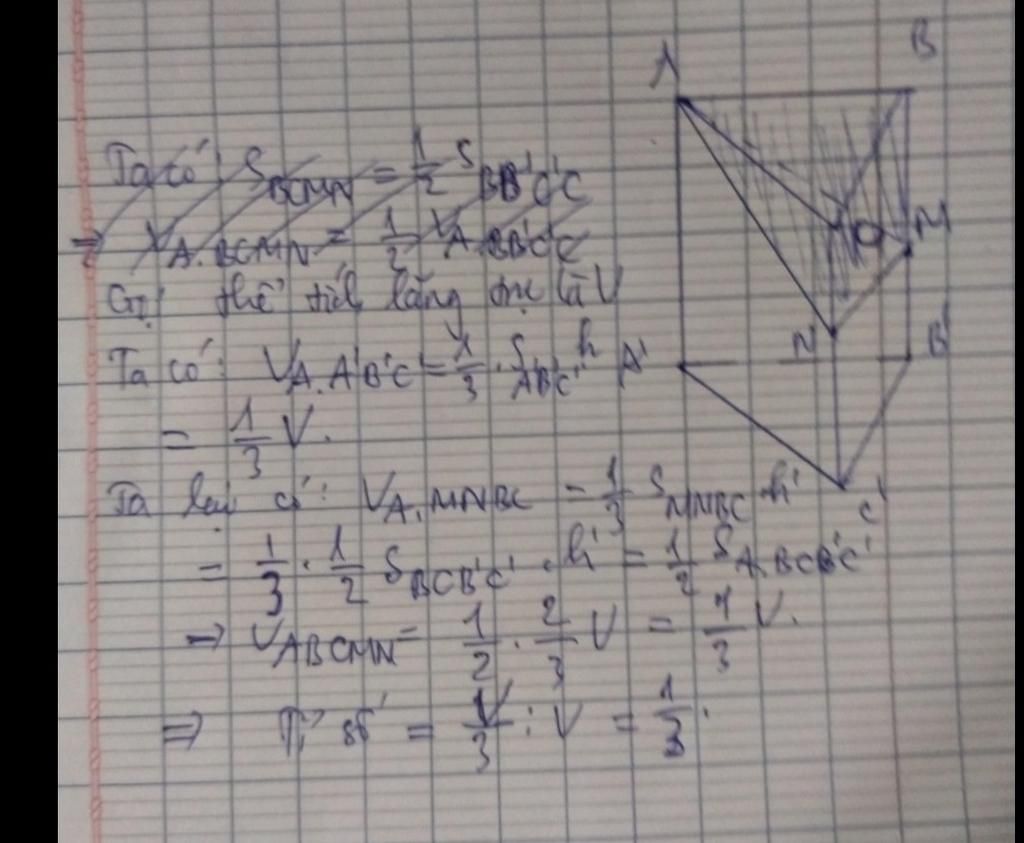 Ta có: S_BCMN = 1/2 S_BB'C'C
⇒ V_A.BCMN = 1/2 V_A.BB'C'C
Gọi thể tích lăng trụ là V
Ta có: V_A.A'B'C' = 1/3 . S_A'B'C' h
= 1/3 V.
Ta lại có: V_A.MNBC = 1/3 S_MNBC . h'
= 1/3 . 1/2 S_BCB'C' . h' = 1/2 S_A.BCB'C'
→ V_ABCMN = 1/2 . 2/3 V = 1/3 V.
⇒ Tỉ số = V/3 : V = 1/3.
A
B
C
M
N
A'
B'
C'